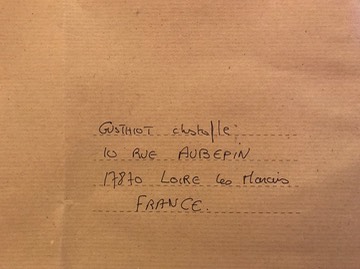 GUSTHIOT christolle
10 RUE AUBEPIN
17870 LOIRE les Marais
FRANCE.